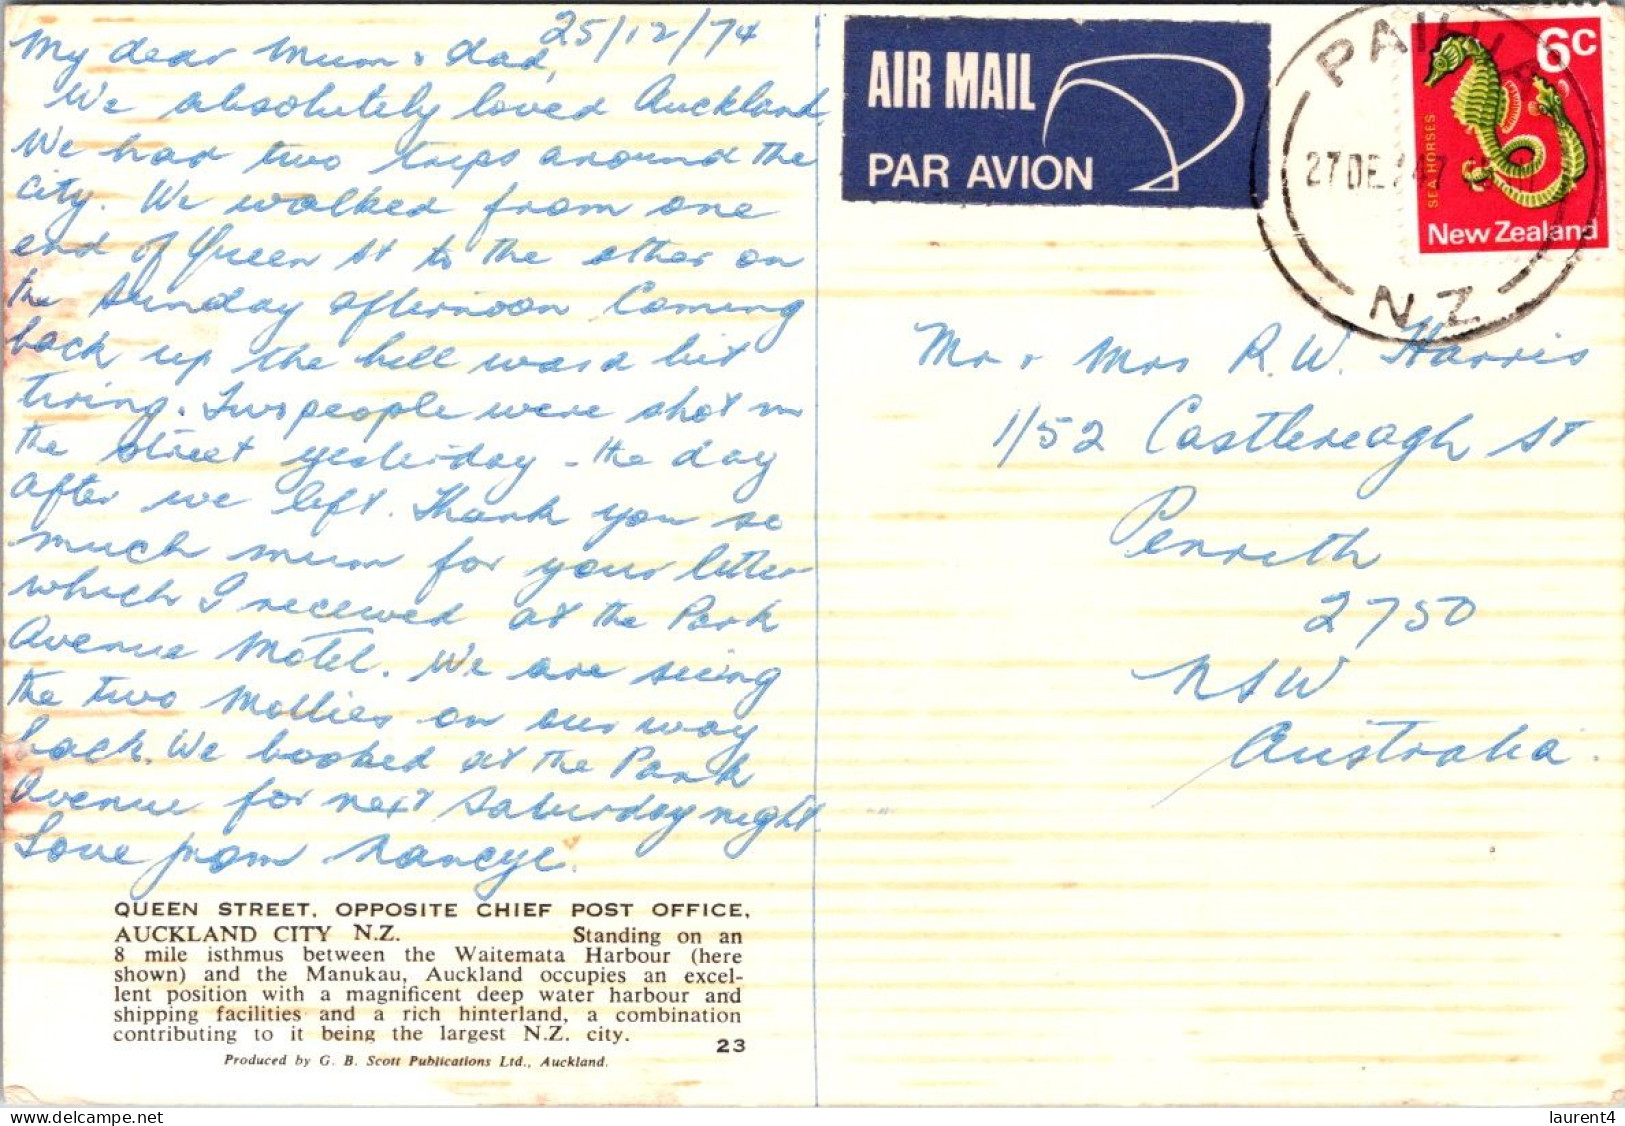 25/12/74
My dear Mum & dad,
We absolutely loved Auckland.
We had two trips around the
city. We walked from one
end of Queen St to the other on
the Sunday afternoon Coming
back up the hill was a bit
tiring. Two people were shot in
the street yesterday - the day
after we left. Thank you so
much mum for your letter
which I received at the Park
Avenue Motel. We are seeing
the two Mollies on our way
back. We booked at the Park
Avenue for next Saturday night.
Love from Nancye.
QUEEN STREET, OPPOSITE CHIEF POST OFFICE,
AUCKLAND CITY N.Z. Standing on an
8 mile isthmus between the Waitemata Harbour (here
shown) and the Manukau, Auckland occupies an excel-
lent position with a magnificent deep water harbour and
shipping facilities and a rich hinterland, a combination
contributing to it being the largest N.Z. city.
23
Produced by G. B. Scott Publications Ltd., Auckland.
AIR MAIL
PAR AVION
27 DE
N.Z.
6c
SEA HORSES
New Zealand
Mr & Mrs R.W. Harris
1/52 Castlereagh St
Penrith
2750
NSW
Australia.
laurent4